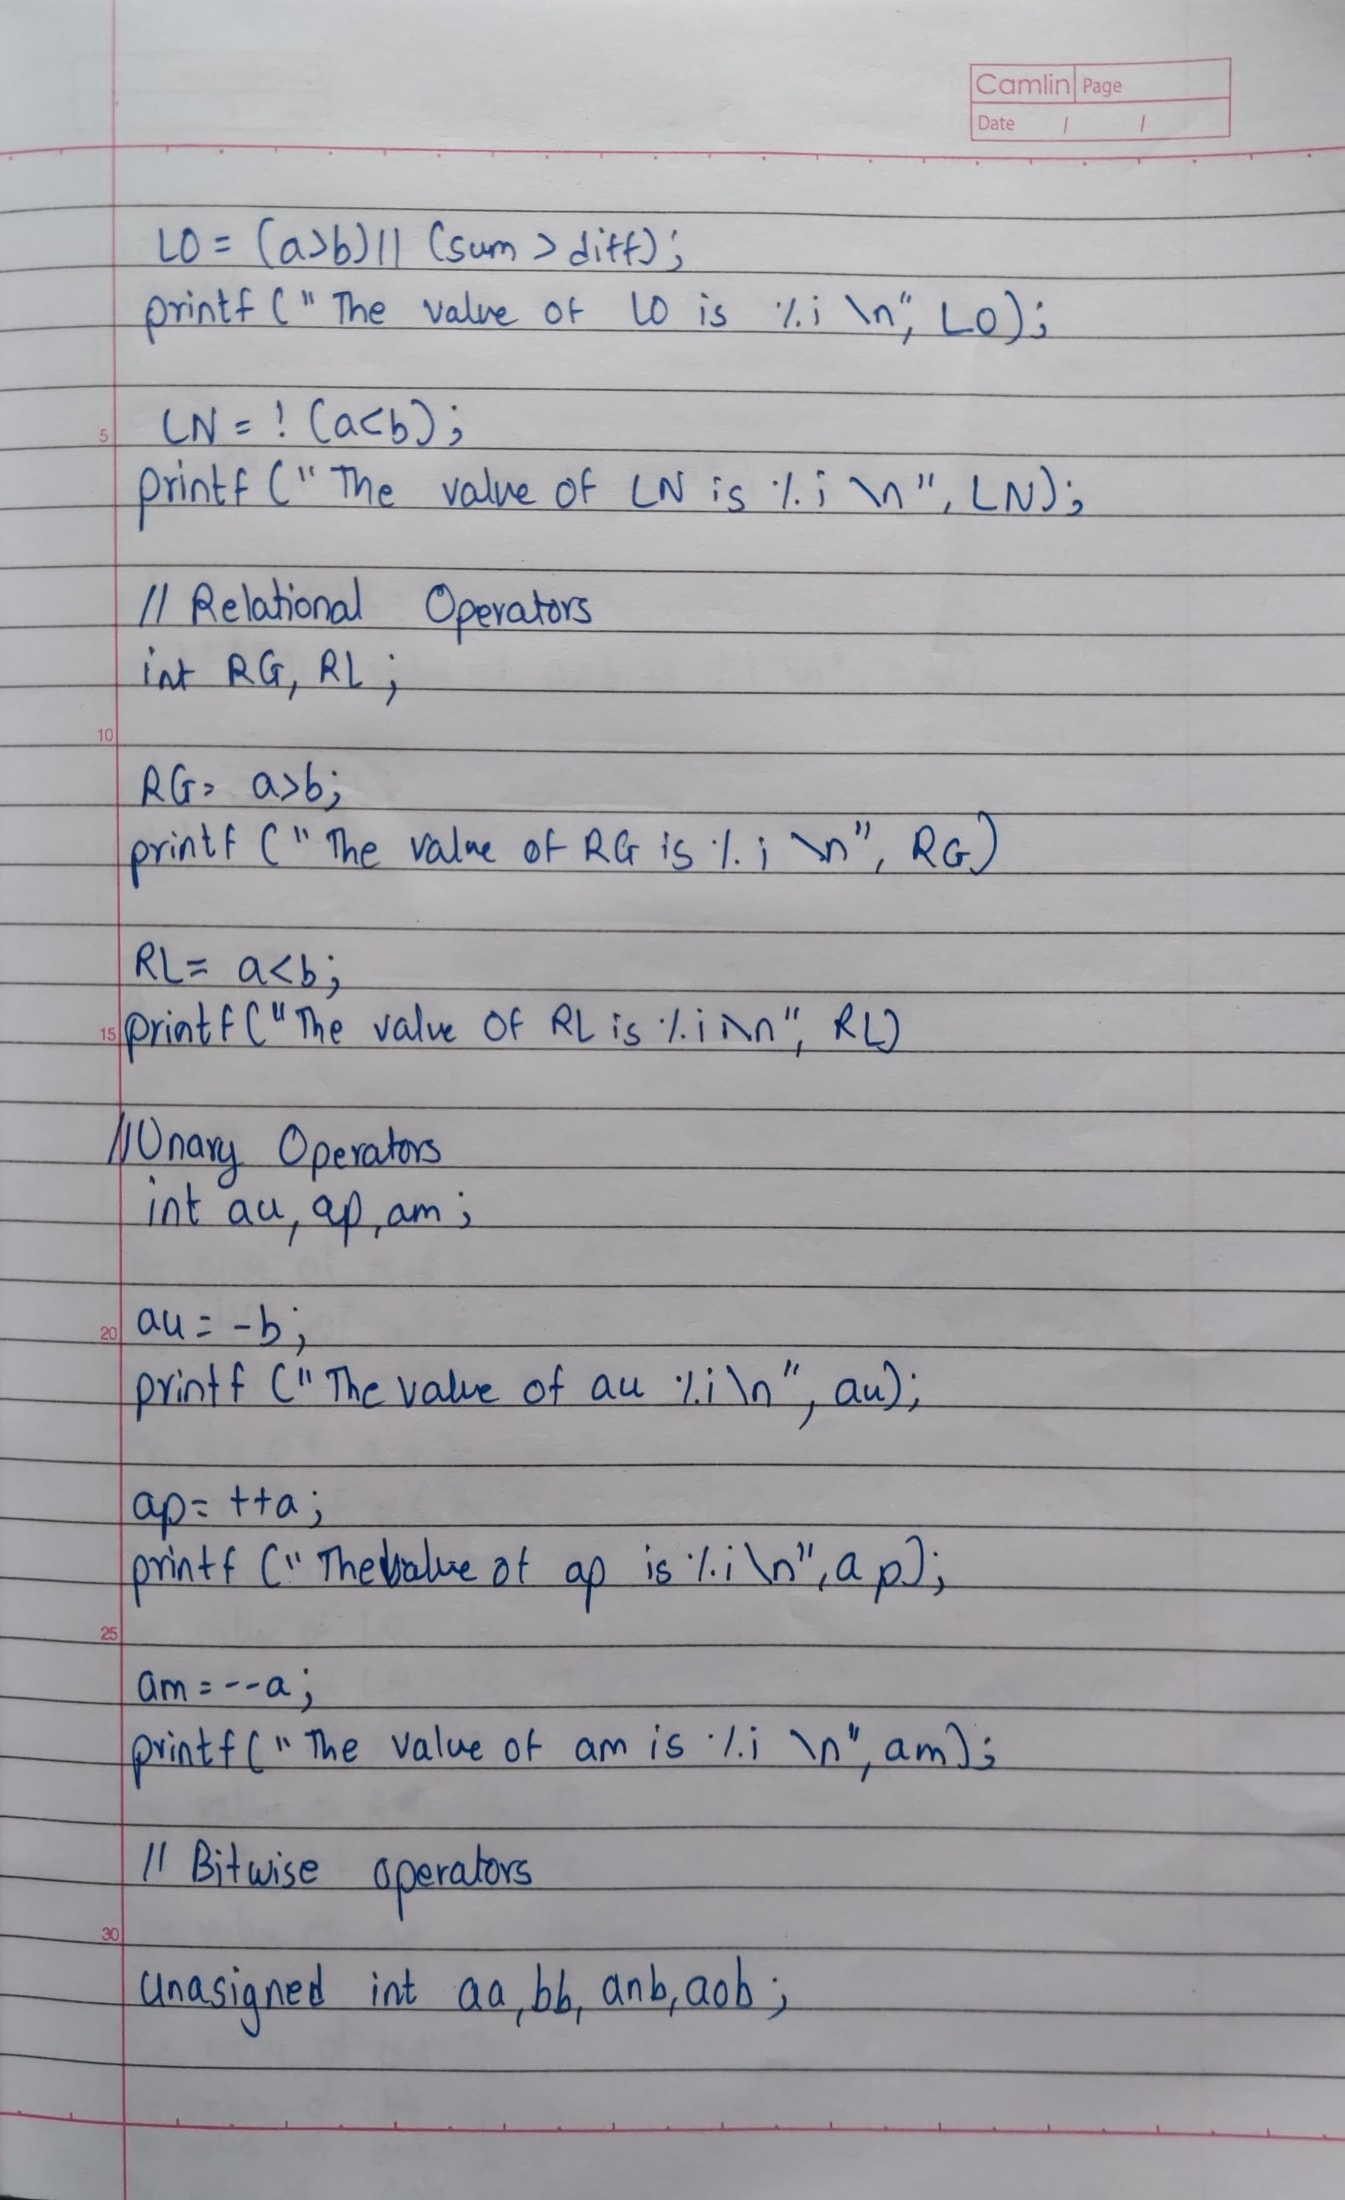 Camlin Page
Date / /
LO = (a>b)|| (sum > diff);
printf (" The value of LO is %i \n", LO);
5
LN = ! (a<b);
printf (" The value of LN is %i \n", LN);
// Relational Operators
int RG, RL;
10
RG= a>b;
printf (" The value of RG is %i \n", RG)
RL= a<b;
15 printf("The value of RL is %i \n", RL)
//Unary Operators
int au, ap, am;
20 au = -b;
printf (" The value of au %i \n", au);
ap= ++a;
printf (" The value of ap is %i \n", ap);
25
am = --a;
printf(" The value of am is %i \n", am);
// Bitwise operators
30
unasigned int aa, bb, anb, aob;